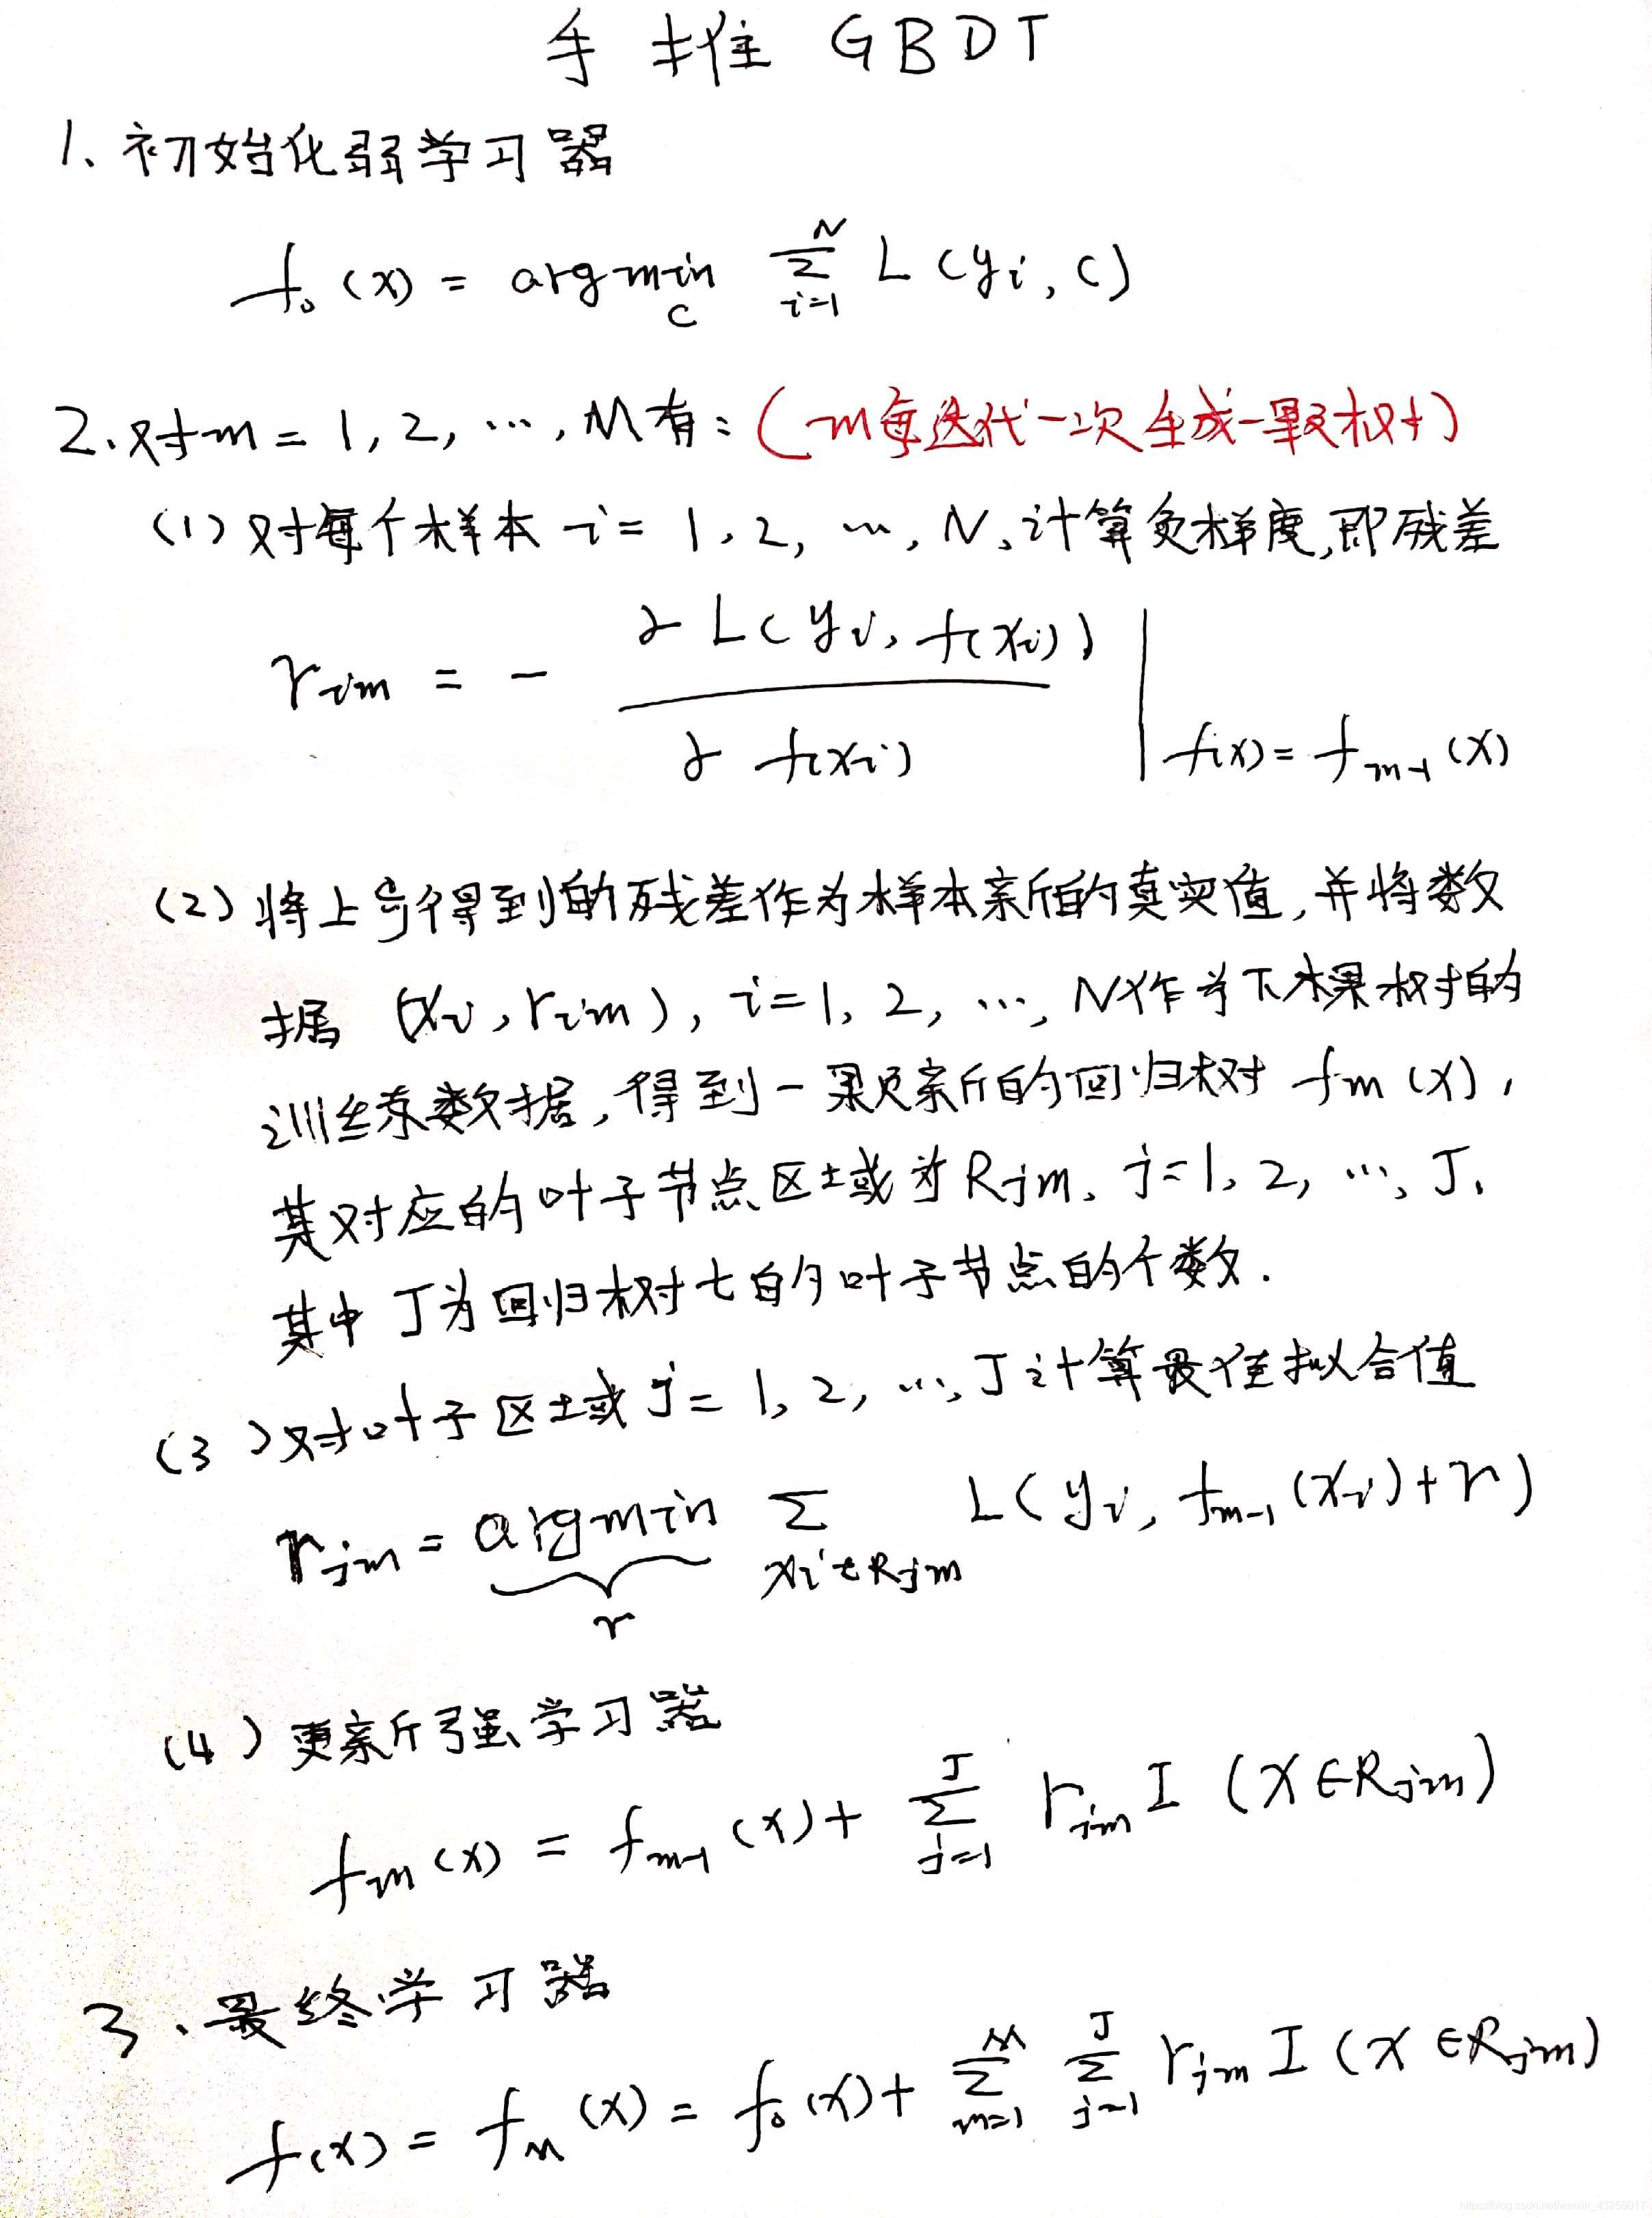 手推 GBDT
1、初始化弱学习器
f₀(x) = argmin_c Σ_{i=1}^{N} L(yi, c)
2、对m = 1, 2, …, M有：(m每迭代一次生成一颗树)
(1) 对每个样本 i = 1, 2, …, N、计算负梯度,即残差
r_{im} = - ∂L(yi, f(xi)) / ∂f(xi) | f(x) = f_{m-1}(x)
(2) 将上步得到的残差作为样本新的真实值,并将数
据 (xi, r_{im}), i = 1, 2, …, N作为下棵树的
训练数据,得到一颗新的回归树 f_m(x),
其对应的叶子节点区域为 R_{jm}, j = 1, 2, …, J.
其中 J为回归树t的叶子节点的个数.
(3) 对叶子区域 j = 1, 2, …, J计算最佳拟合值
r_{jm} = argmin_r Σ_{xi∈R_{jm}} L(yi, f_{m-1}(xi) + r)
(4) 更新强学习器
f_m(x) = f_{m-1}(x) + Σ_{j=1}^{J} r_{jm} I (x∈R_{jm})
3、最终学习器
f(x) = f_M(x) = f₀(x) + Σ_{m=1}^{M} Σ_{j=1}^{J} r_{jm} I (x∈R_{jm})
https://blog.csdn.net/weixin_43258017